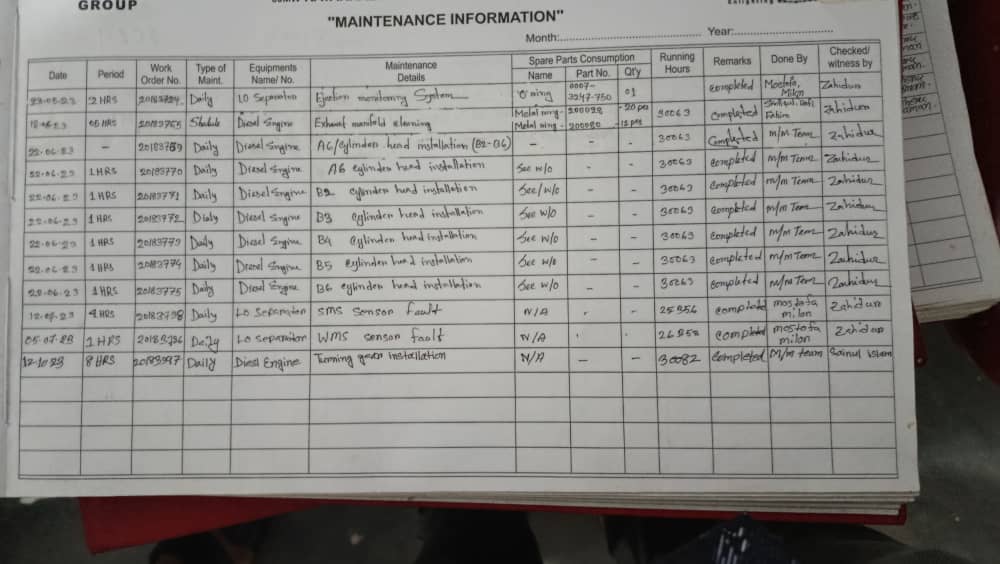 GROUP
"MAINTENANCE INFORMATION"
Month:.................... Year:....................
Date Period Work Order No. Type of Maint. Equipments Name/ No. Maintenance Details Spare Parts Consumption Name Part No. Qt'y Running Hours Remarks Done By Checked/ witness by
2 HRS 20183724 Daily LO Separator Ejection monitoring System O ring 0007-3247-750 01 completed Mostofa, Milon Zahidur
05 HRS 20183765 Shedule Diesel Engine Exhaust manifold cleaning Metal ring - 200028 - 20 pcs Metal ring - 200080 - 12 pcs 30063 completed Fahim Zahidur
22-06-23 - 20183769 Daily Diesel Engine A6/cylinder head installation (B2-B6) - - - 30063 Completed M/M Team Zahidur
22-06-23 1 HRS 20183770 Daily Diesel Engine A6 cylinder head installation See w/o - - 30063 completed M/M Team Zahidur
22-06-23 1 HRS 20183771 Daily Diesel Engine B2 cylinder head installation See/w/o - - 30063 completed M/M Team Zahidur
22-06-23 1 HRS 20183772 Dialy Diesel Engine B3 cylinder head installation See w/o - - 30063 completed M/M Team Zahidur
22-06-23 1 HRS 20183773 Daily Diesel Engine B4 cylinder head installation See w/o - - 30063 completed M/M Team Zahidur
22-06-23 1 HRS 20183774 Daily Diesel Engine B5 cylinder head installation See w/o - - 30063 completed M/M Team Zahidur
22-06-23 1 HRS 20183775 Daily Diesel Engine B6 cylinder head installation See w/o - - 30063 completed M/M Team Zahidur
4 HRS 20183798 Daily LO Separator SMS Sensor fault N/A - - completed mostofa milon Zahidur
05-07-23 1 HRS Daily LO separator WMS sensor fault N/A completed mostofa milon Zahidur
12-10-23 8 HRS 20183997 Daily Diesel Engine Turning gear installation N/A - - 30082 Completed M/m team Sainul Islam